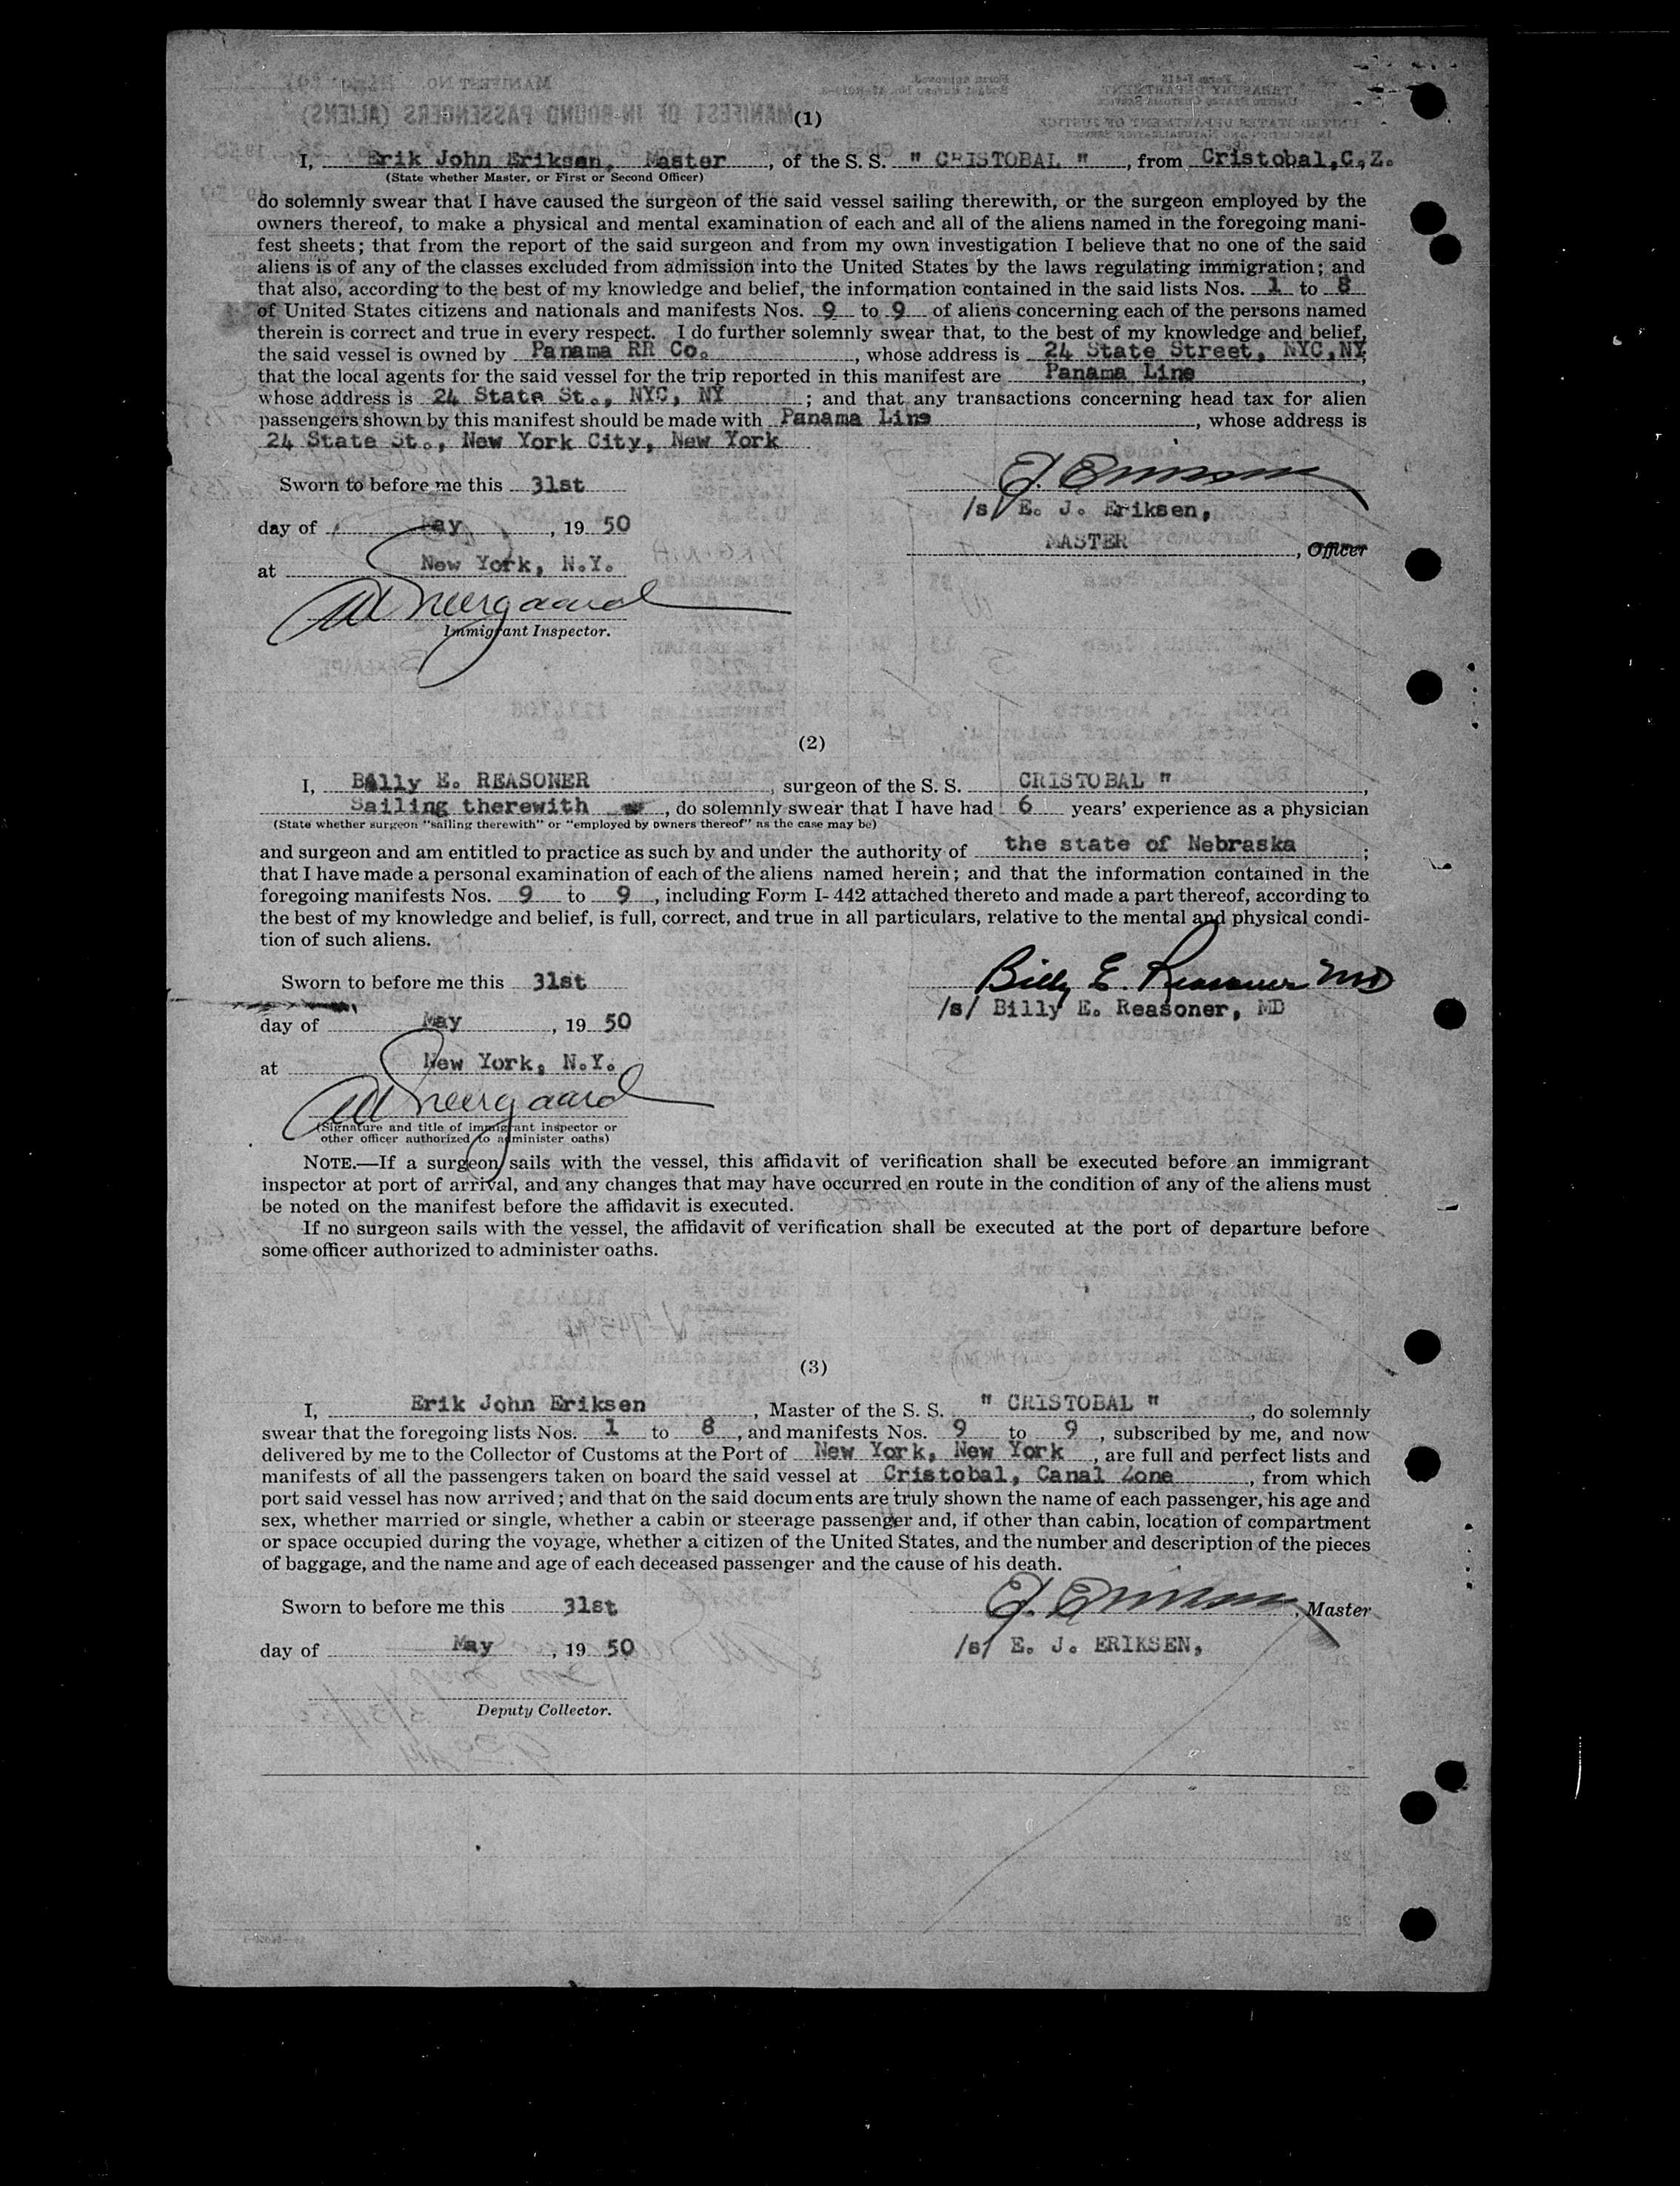 (1)
I, Erik John Eriksen, Master, of the S. S. " CRISTOBAL ", from Cristobal, C. Z.
(State whether Master, or First or Second Officer)
do solemnly swear that I have caused the surgeon of the said vessel sailing therewith, or the surgeon employed by the
owners thereof, to make a physical and mental examination of each and all of the aliens named in the foregoing mani-
fest sheets; that from the report of the said surgeon and from my own investigation I believe that no one of the said
aliens is of any of the classes excluded from admission into the United States by the laws regulating immigration; and
that also, according to the best of my knowledge and belief, the information contained in the said lists Nos. 1 to 8
of United States citizens and nationals and manifests Nos. 9 to 9 of aliens concerning each of the persons named
therein is correct and true in every respect. I do further solemnly swear that, to the best of my knowledge and belief,
the said vessel is owned by Panama RR Co., whose address is 24 State Street, NYC, NY;
that the local agents for the said vessel for the trip reported in this manifest are Panama Line,
whose address is 24 State St., NYC, NY; and that any transactions concerning head tax for alien
passengers shown by this manifest should be made with Panama Line, whose address is
24 State St., New York City, New York.
Sworn to before me this 31st
/s/ E. J. Eriksen,
day of May, 19 50
MASTER, Officer
at New York, N.Y.
Immigrant Inspector.
(2)
I, Billy E. REASONER, surgeon of the S. S. CRISTOBAL ",
Sailing therewith, do solemnly swear that I have had 6 years' experience as a physician
(State whether surgeon "sailing therewith" or "employed by owners thereof" as the case may be)
and surgeon and am entitled to practice as such by and under the authority of the state of Nebraska;
that I have made a personal examination of each of the aliens named herein; and that the information contained in the
foregoing manifests Nos. 9 to 9, including Form I-442 attached thereto and made a part thereof, according to
the best of my knowledge and belief, is full, correct, and true in all particulars, relative to the mental and physical condi-
tion of such aliens.
Sworn to before me this 31st
Billy E. Reasoner MD
/s/ Billy E. Reasoner, MD
day of May, 19 50
at New York, N.Y.
(Signature and title of immigrant inspector or
other officer authorized to administer oaths)
NOTE.—If a surgeon sails with the vessel, this affidavit of verification shall be executed before an immigrant
inspector at port of arrival, and any changes that may have occurred en route in the condition of any of the aliens must
be noted on the manifest before the affidavit is executed.
If no surgeon sails with the vessel, the affidavit of verification shall be executed at the port of departure before
some officer authorized to administer oaths.
(3)
I, Erik John Eriksen, Master of the S. S. " CRISTOBAL ", do solemnly
swear that the foregoing lists Nos. 1 to 8, and manifests Nos. 9 to 9, subscribed by me, and now
delivered by me to the Collector of Customs at the Port of New York, New York, are full and perfect lists and
manifests of all the passengers taken on board the said vessel at Cristobal, Canal Zone, from which
port said vessel has now arrived; and that on the said documents are truly shown the name of each passenger, his age and
sex, whether married or single, whether a cabin or steerage passenger and, if other than cabin, location of compartment
or space occupied during the voyage, whether a citizen of the United States, and the number and description of the pieces
of baggage, and the name and age of each deceased passenger and the cause of his death.
Sworn to before me this 31st
, Master
day of May, 19 50
/s/ E. J. ERIKSEN,
Deputy Collector.